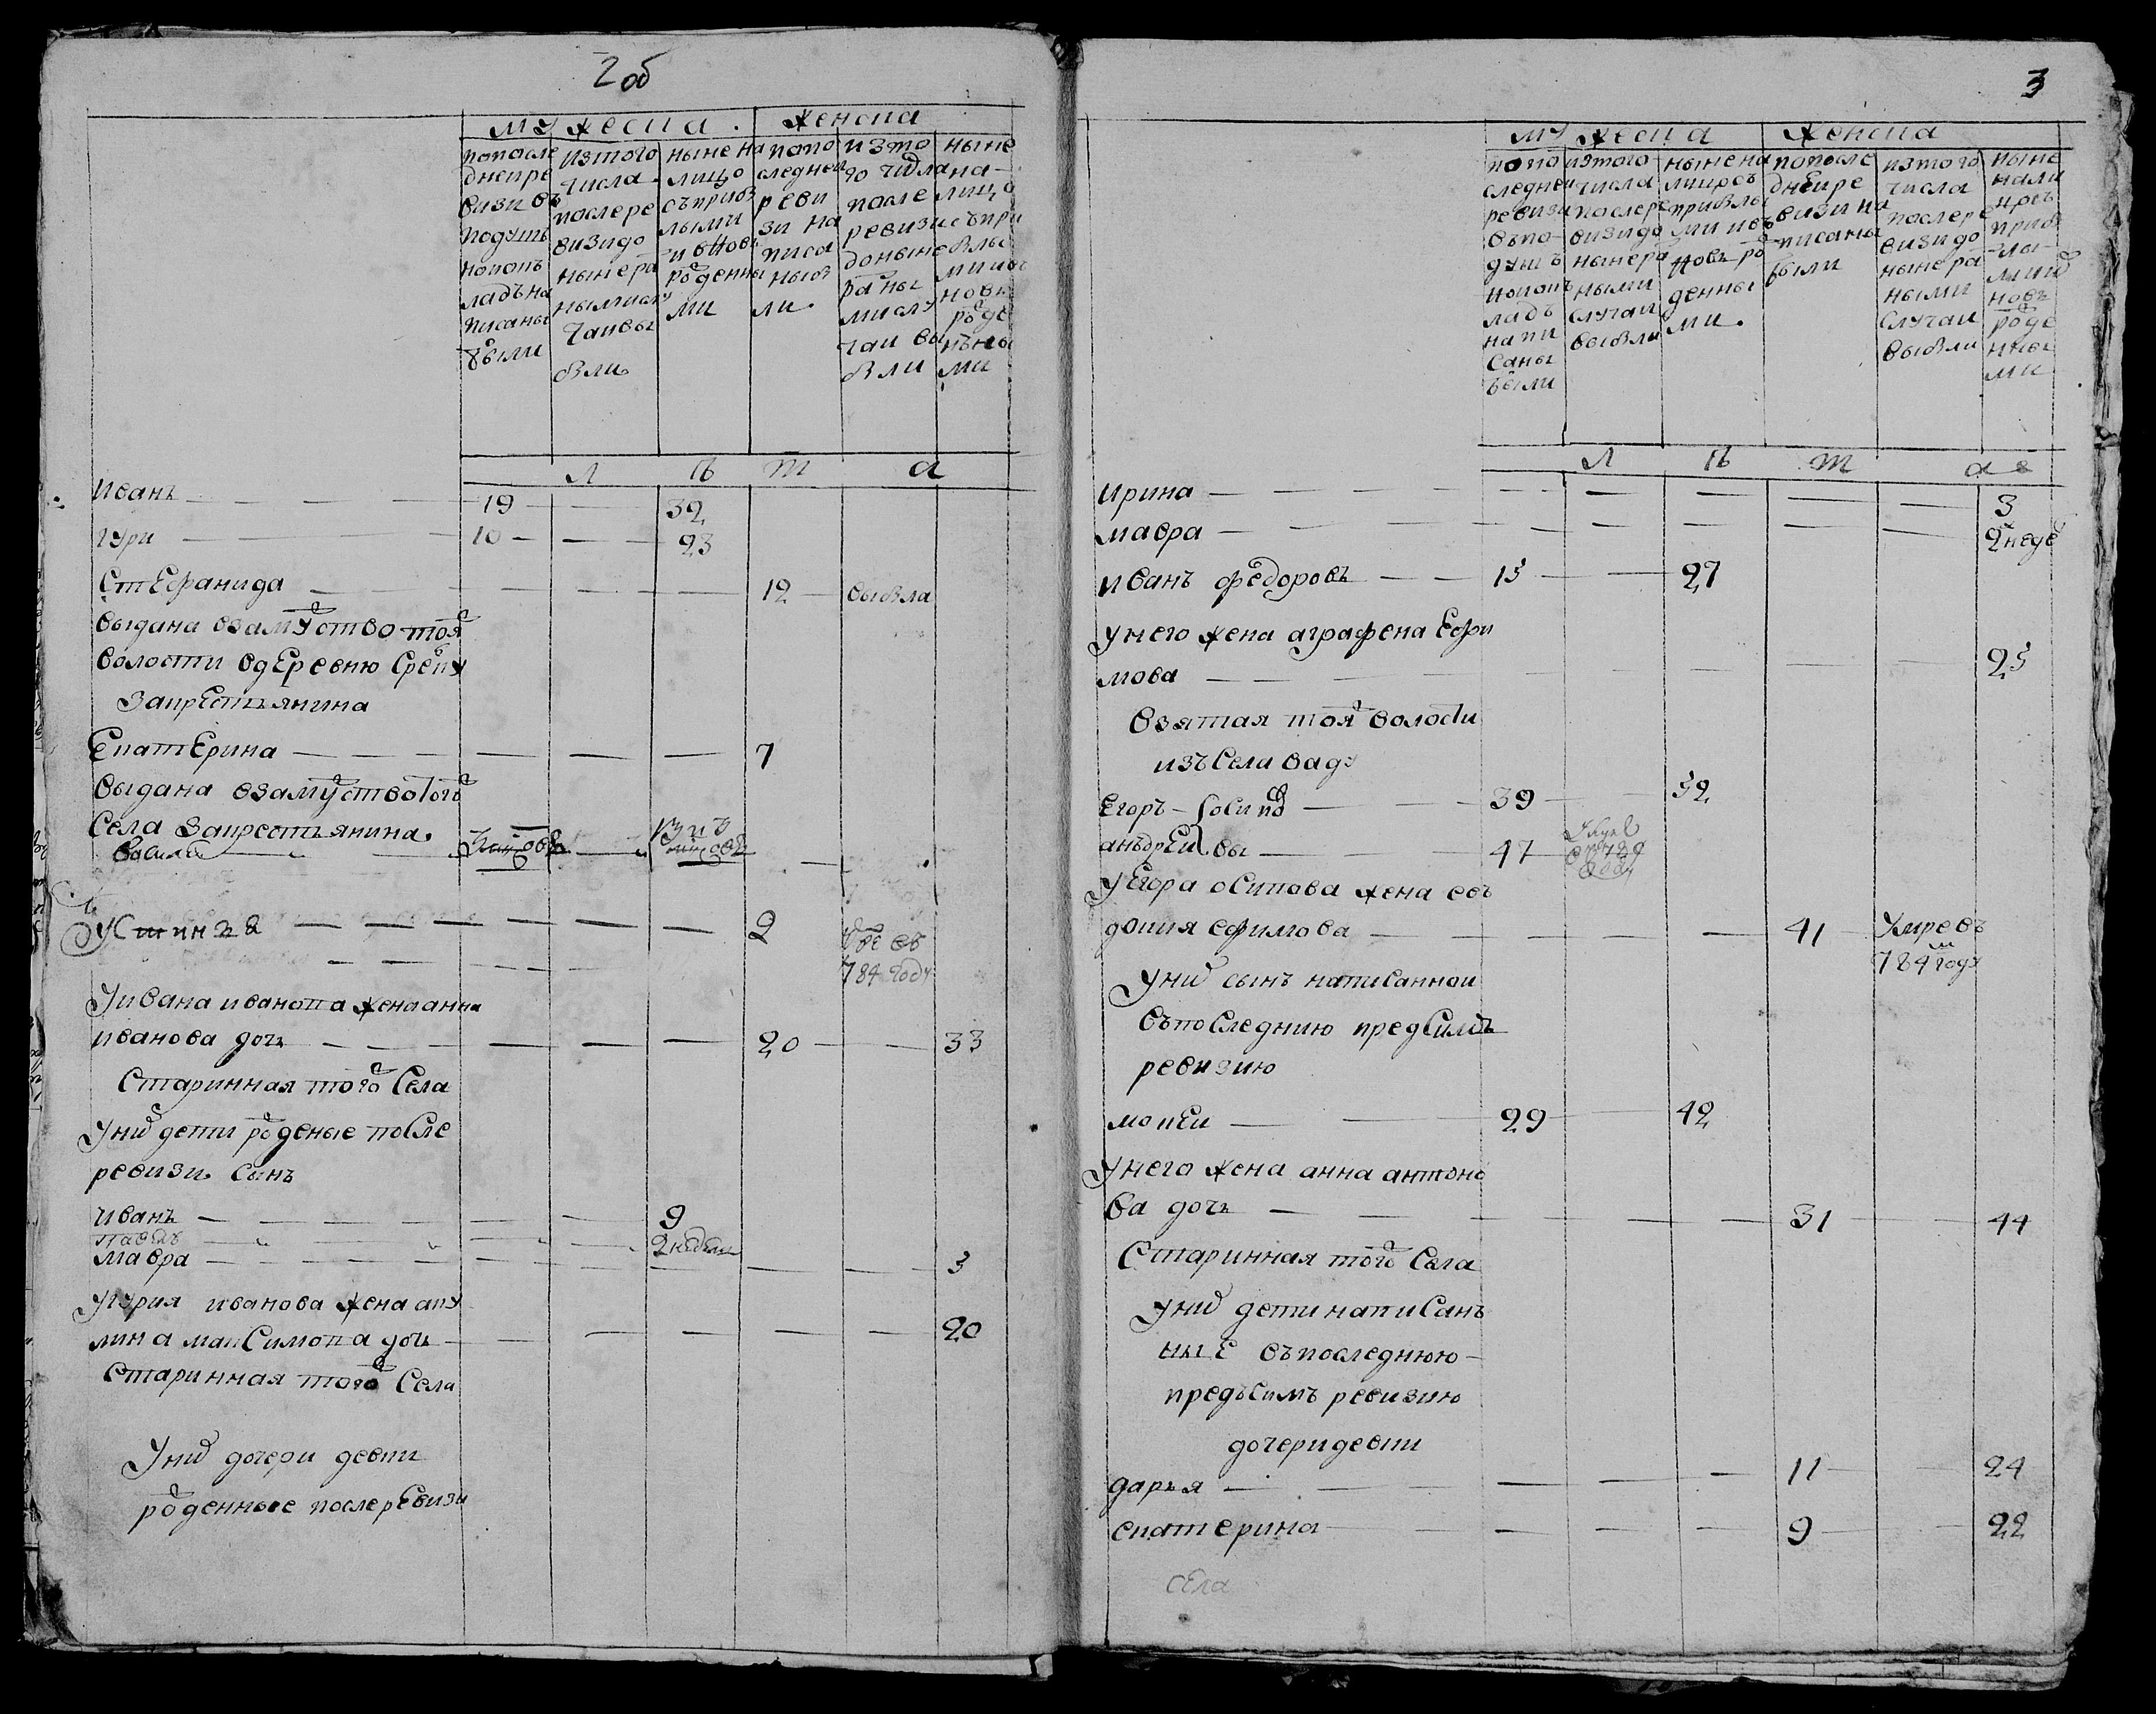 2 об
мужеска . женска
попосле днеи ре визи въ подушь нои окъ ладъ на писаны были
изтого числа после ре визи до ныне ра ными слу чаи вы были
ныне на лицо съ прибы лыми и вновь рожденны ми
попо следнеи реви зи на писа ны бы ли
изто го числа после ревизи до ныне раны ми слу чаи вы были
ныне на лицо съ при былы ми и въ новь рожде нъны ми
Л Ѣ Т а
иванъ 19 32
гури 10 23
Стефанида 12 выбыла
выдана взамужство тояж
волости вдеревню
за крестьянина
Екатерина 7
выдана взамужство тогож
села за крестьянина
Василей
Устинья 2
784 году
У ивана иванова жена анна
иванова дочь 20 33
старинная того ж села
У них дети рожденые после
ревизи сынъ
иванъ 9
павелъ 2 недели
мавра 3
У гурия иванова жена аку
лина максимова дочь 20
старинная того ж села
У них дочери девки
рожденные после ревизи
3
мужеска женска
попо следнеи ревизи въ по душъ нои окъ ладъ напи саны были
изтого числа после ре визи до ныне ра ными случаи выбыли
ныне на лицо съ прибылы ми и въ новь рож денны ми
попосле днеи ре визи на писаны были
изтого числа после ре визи до ныне ра ными случаи выбыли
ныне нали цо съ прибы лы ми и въ новь рожде нны ми
Л Ѣ Т а
ирина 3
мавра 2 неде
иванъ федоровъ 15 27
у него жена аграфена ефи
мова 25
взятая тояж волости
изъ села ваду
егоръ осипо 39 52
андреи вы 47
У Егора осипова жена ев
докия ефимова 41 умре въ
784м году
У них сынъ написаннои
въ последнию пред симъ
ревизию
мокеи 29 42
У него жена анна антоно
ва дочь 31 44
Старинная того ж села
У них дети написанъ
ныЕ въ последнюю
предъ симъ ревизию
дочери девки
дарья 11 24
екатерина 9 22
села